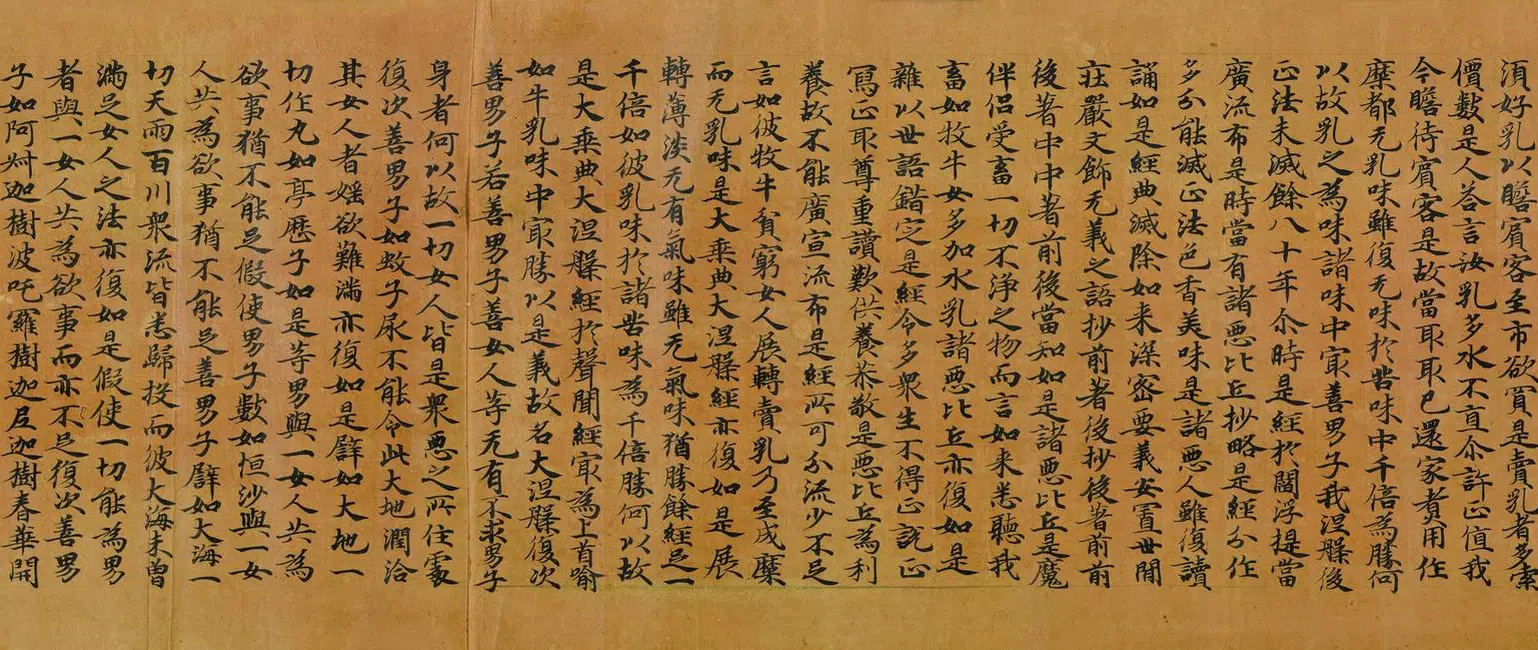 須好乳以瞻賓客至市欲買是賣乳者多索
價數是人荅言汝乳多水不直尒許正值我
今瞻待賓客是故當取取已還家煮用作
糜都无乳味雖復无味於苦味中千倍為勝何
以故乳之為味諸味中冣善男子我涅槃後
正法未滅餘八十年尒時是經於閻浮提當
廣流布是時當有諸惡比丘抄略是經分作
多分能滅正法色香美味是諸惡人雖復讀
誦如是經典滅除如来深密要義安置世間
莊嚴文飾无義之語抄前著後抄後著前前
後著中中著前後當知如是諸惡比丘是魔
伴侶受畜一切不淨之物而言如来悉聽我
畜如牧牛女多加水乳諸惡比丘亦復如是
雜以世語錯定是經令多衆生不得正說正
寫正取尊重讚歎供養恭敬是惡比丘為利
養故不能廣宣流布是經所可分流少不足
言如彼牧牛貧窮女人展轉賣乳乃至成糜
而无乳味是大乗典大涅槃經亦復如是展
轉薄淡无有氣味雖无氣味猶勝餘經足一
千倍如彼乳味於諸苦味為千倍勝何以故
是大乗典大涅槃經於聲聞經冣為上首喻
如牛乳味中冣勝以是義故名大涅槃復次
善男子若善男子善女人等无有不求男子
身者何以故一切女人皆是衆惡之所住處
復次善男子如蚊子尿不能令此大地潤洽
其女人者婬欲難滿亦復如是譬如大地一
切作丸如亭歷子如是等男與一女人共為
欲事猶不能足假使男子數如恒沙與一女
人共為欲事猶不能足善男子譬如大海一
切天雨百川衆流皆悉歸投而彼大海未曾
滿足女人之法亦復如是假使一切能為男
者與一女人共為欲事而亦不足復次善男
子如阿叔迦樹波吒羅樹迦尼迦樹春華開